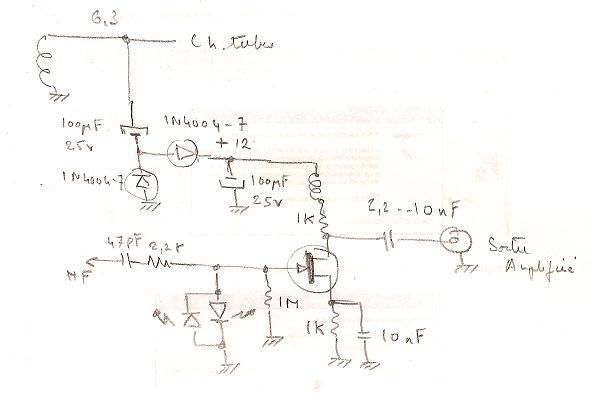 6,3
Ch. tubes
100µF
25v
1N4004-7
+12
1N4004-7
100µF
25v
1K
2,2--10nF
47pF
2,2K
HF
Sortie
Amplifié
1M
1K
10nF